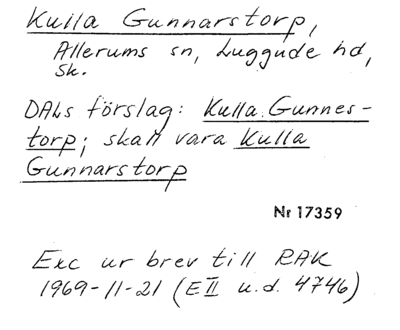 Kulla Gunnarstorp,
Allerums sn, Luggude hd,
Sk.
DALs förslag: Kulla Gunnes-
torp; skall vara Kulla
Gunnarstorp
Nr 17359
Exc ur brev till RAK
1969-11-21 (E II u.d. 4746)